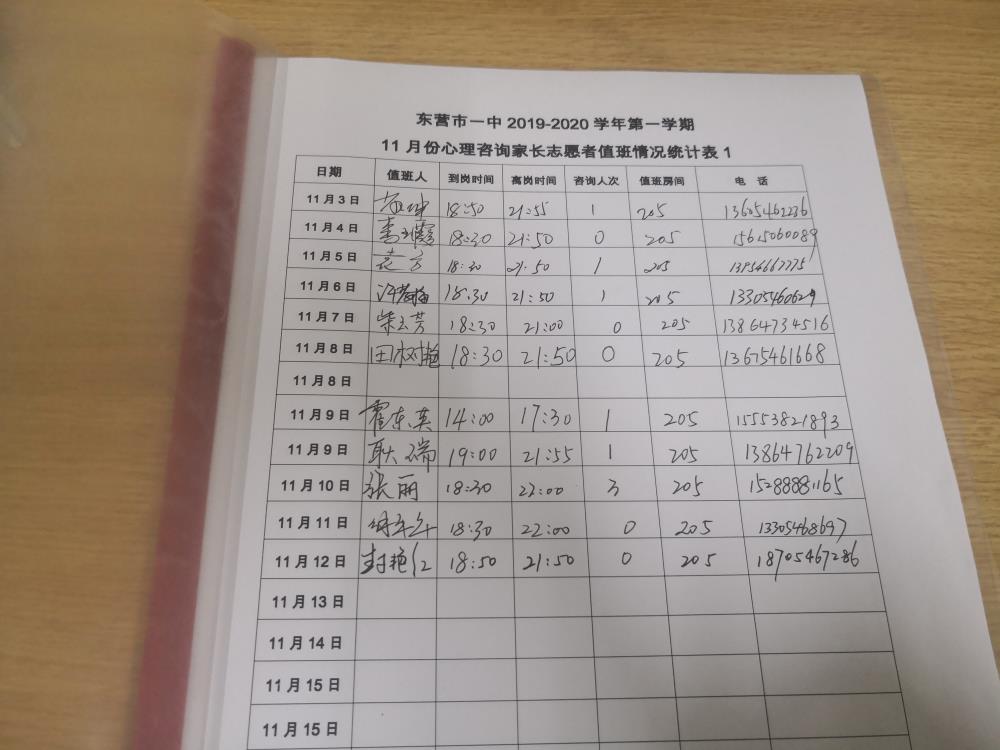 东营市一中 2019-2020 学年第一学期
11 月份心理咨询家长志愿者值班情况统计表 1
日期 值班人 到岗时间 离岗时间 咨询人次 值班房间 电 话
11 月 3 日 18:50 21:55 1 205 13605462236
11 月 4 日 18:30 21:50 0 205 15615060089
11 月 5 日 18:30 21:50 1 205 13954667775
11 月 6 日 18:30 21:50 1 205 13305460629
11 月 7 日 柴玉芳 18:30 21:00 0 205 13864734516
11 月 8 日 田树艳 18:30 21:50 0 205 13675461668
11 月 8 日
11 月 9 日 霍东英 14:00 17:30 1 205 15553821893
11 月 9 日 耿瑞 19:00 21:55 1 205 13864762209
11 月 10 日 张丽 18:30 22:00 3 205 15288881165
11 月 11 日 18:30 22:00 0 205 13305468697
11 月 12 日 封艳红 18:50 21:50 0 205 18705467286
11 月 13 日
11 月 14 日
11 月 15 日
11 月 15 日